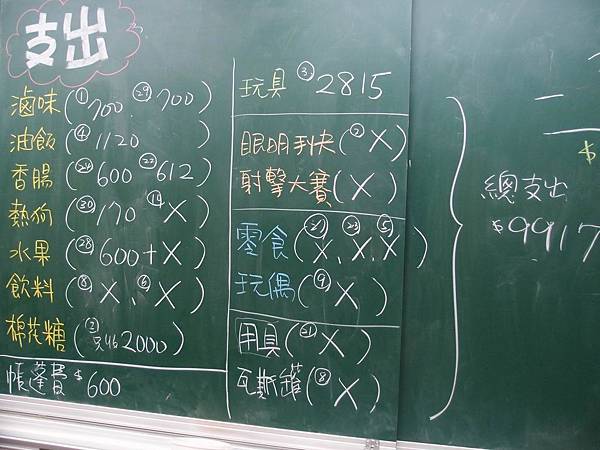 支出
滷味(①700、㉙700)
油飯(④1120 )
香腸(㉔600 ㉒612)
熱狗(㉚170 ⑭X)
水果(㉘600+X)
飲料(⑧X、⑥X)
棉花糖(②只收2000)
帳蓬費$600
玩具 ③2815
眼明手快(②X)
射擊大賽(X)
零食(㉗X、㉓X、⑤X)
玩偶(⑨X)
用具(㉑X)
瓦斯罐(⑧X)
總支出
$9917
$